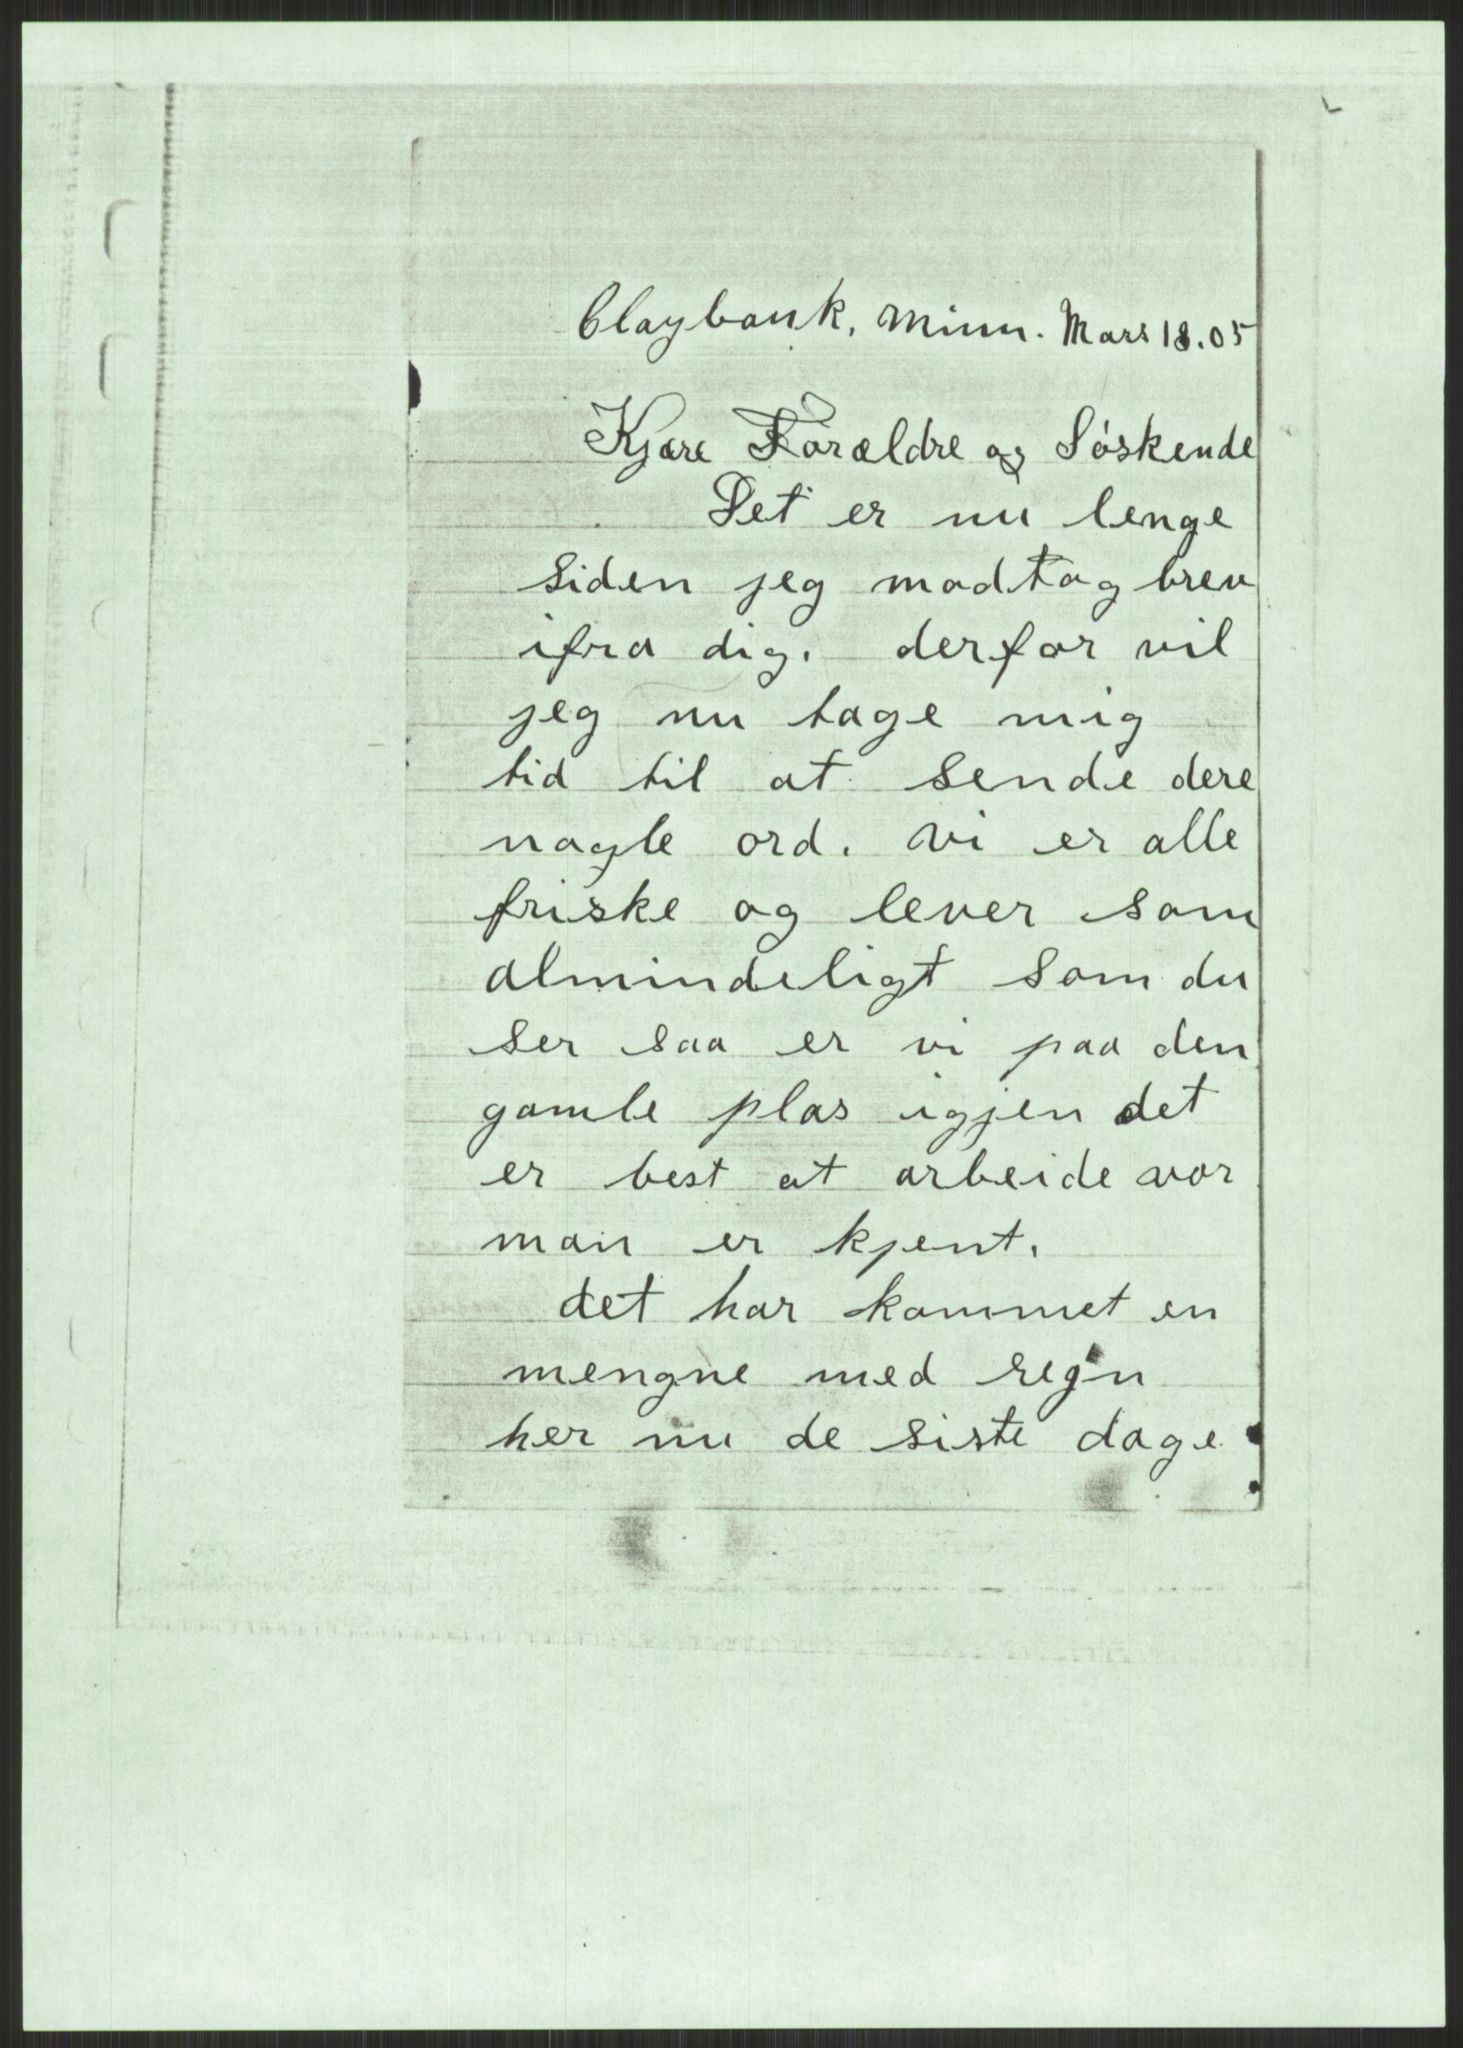 Claybank, Minn. Mars 18.05
Kjære Forældre og Søskende
Det er nu lenge
siden jeg modtog brev
ifra dig. derfor vil
jeg nu tage mig
tid til at sende dere
nogle ord. vi er alle
friske og lever som
almindeligt som du
ser saa er vi paa den
gamle plas igjen det
er best at arbeide vor
man er kjent.
det har kommet en
mengne med regn
her nu de siste dage